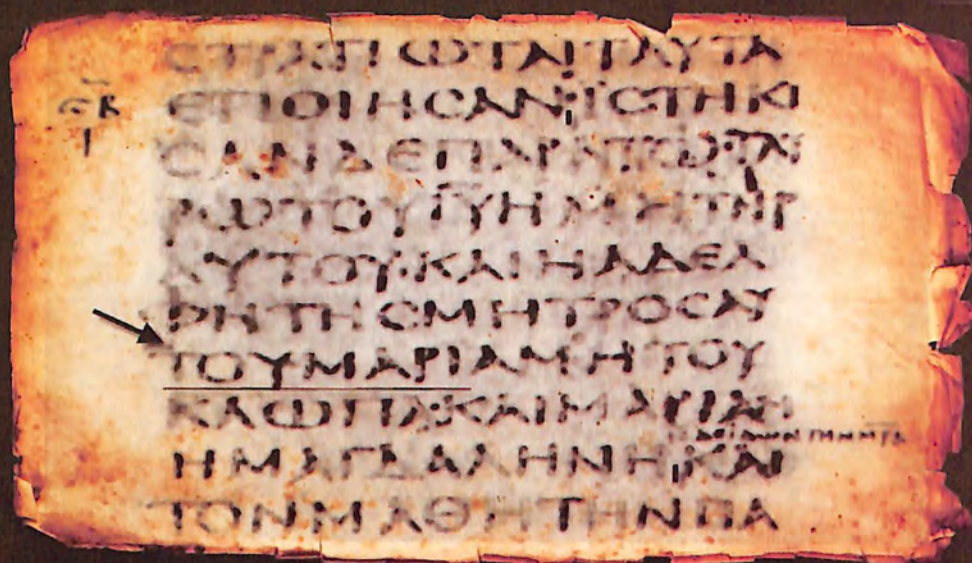 CΤΡΑΤΙΩΤΑΙΤΑΥΤΑ
ΕΠΟΙΗCΑΝΪCΤΗΚΙ
CΑΝΔΕΠΑΡΑΤΩCΤΑΥ
ΡΩΤΟΥΙ̅Υ̅ΗΜΗΤΗΡ
ΑΥΤΟΥ·ΚΑΙΗΑΔΕΛ
ΦΗΤΗCΜΗΤΡΟCΑΥ
ΤΟΥΜΑΡΙΑΜΗΤΟΥ
ΚΛΩΠΑ·ΚΑΙΜΑΡΙΑΜ
ΗΜΑΓΔΑΛΗΝΗ,ΚΑΙ
ΤΟΝΜΑΘΗΤΗΝΠΑ